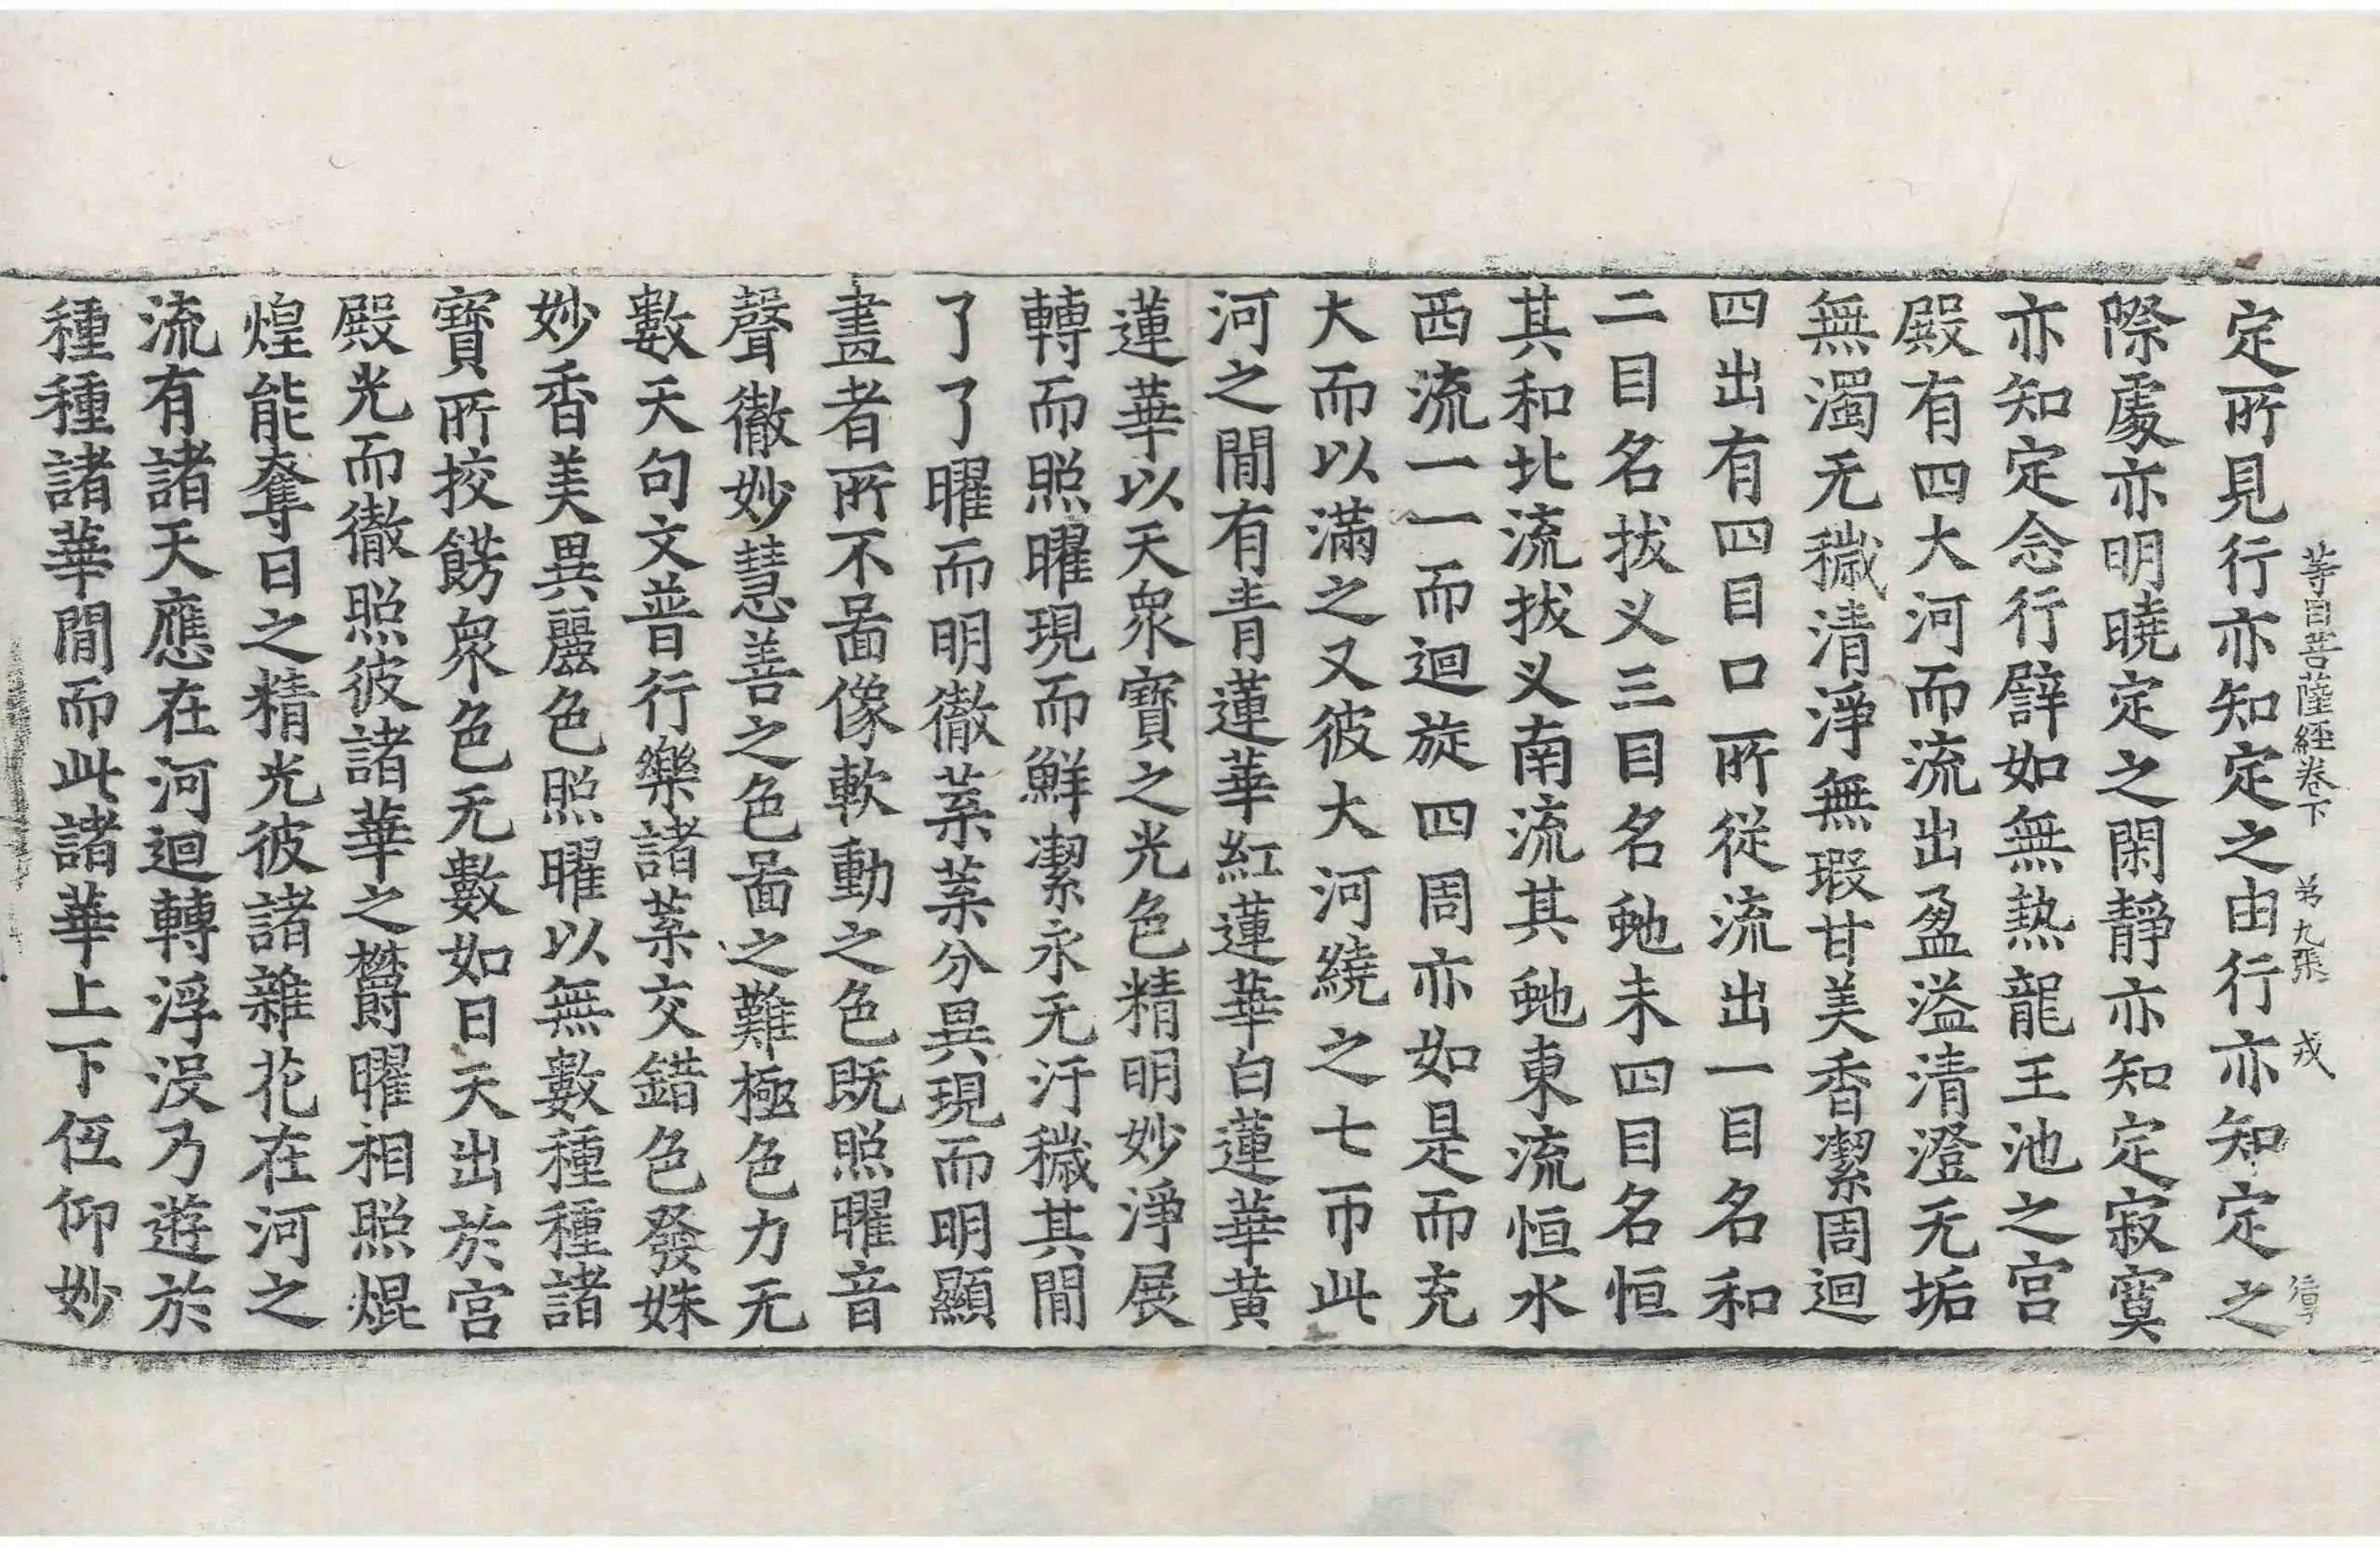 等目菩薩經卷下 第九張 戎
定所見行亦知定之由行亦知定之
際處亦明曉定之閑靜亦知定寂寞
亦知定念行譬如無熱龍王池之宮
殿有四大河而流出盈溢清澄无垢
無濁无穢清淨無瑕甘美香潔周迴
四出有四目口所從流出一目名和
二目名拔义三目名虵未四目名恒
其和北流拔义南流其虵東流恒水
西流一一而迴旋四周亦如是而充
大而以滿之又彼大河繞之七帀此
河之閒有青蓮華紅蓮華白蓮華黄
蓮華以天衆寶之光色精明妙淨展
轉而照曜現而鮮潔永无汙穢其閒
了了曜而明徹葉葉分異現而明顯
晝者所不啚像軟動之色既照曜音
聲徹妙慧善之色啚之難極色力无
數天句文普行樂諸葉交錯色發姝
妙香美異麗色照曜以無數種種諸
寶所挍餝衆色无數如日天出於宮
殿光而徹照彼諸華之欝曜相照焜
煌能奪日之精光彼諸雜花在河之
流有諸天應在河迴轉浮没乃遊於
種種諸華閒而此諸華上下伍仰妙